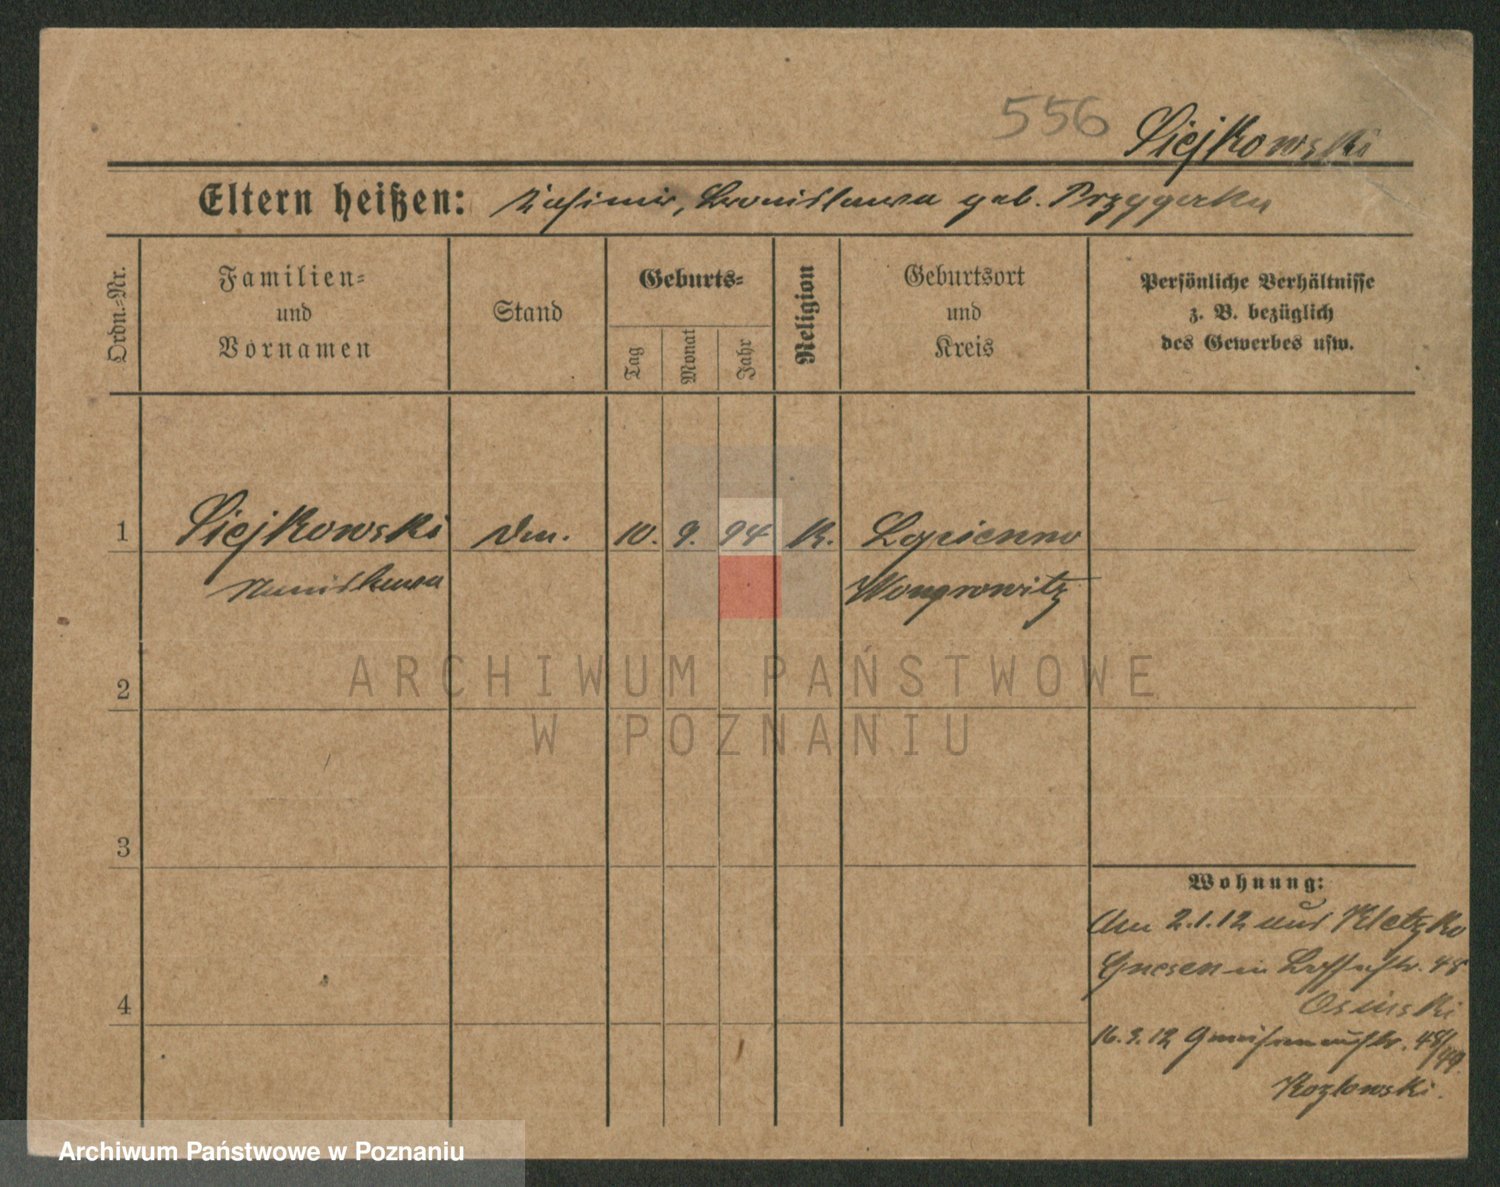 556 Siejkowski
Eltern heißen: Kasimir, Bronislawa geb. Przygocka
Ordn.-Nr.
Familien-
und
Vornamen
Stand
Geburts-
Tag
Monat
Jahr
Religion
Geburtsort
und
Kreis
Persönliche Verhältnisse
z. B. bezüglich
des Gewerbes usw.
1 Siejkowski 10. 9. 94 K. Lopienno
Stanislawa Wongrowitz
2
ARCHIWUM PAŃSTWOWE
W POZNANIU
3
Wohnung:
Am 2.1.12 aus Kletzko
Gnesen in 48
Osinski
4
16.3.12 Gneisenaustr. 48/49.
Kozlowski.
Archiwum Państwowe w Poznaniu